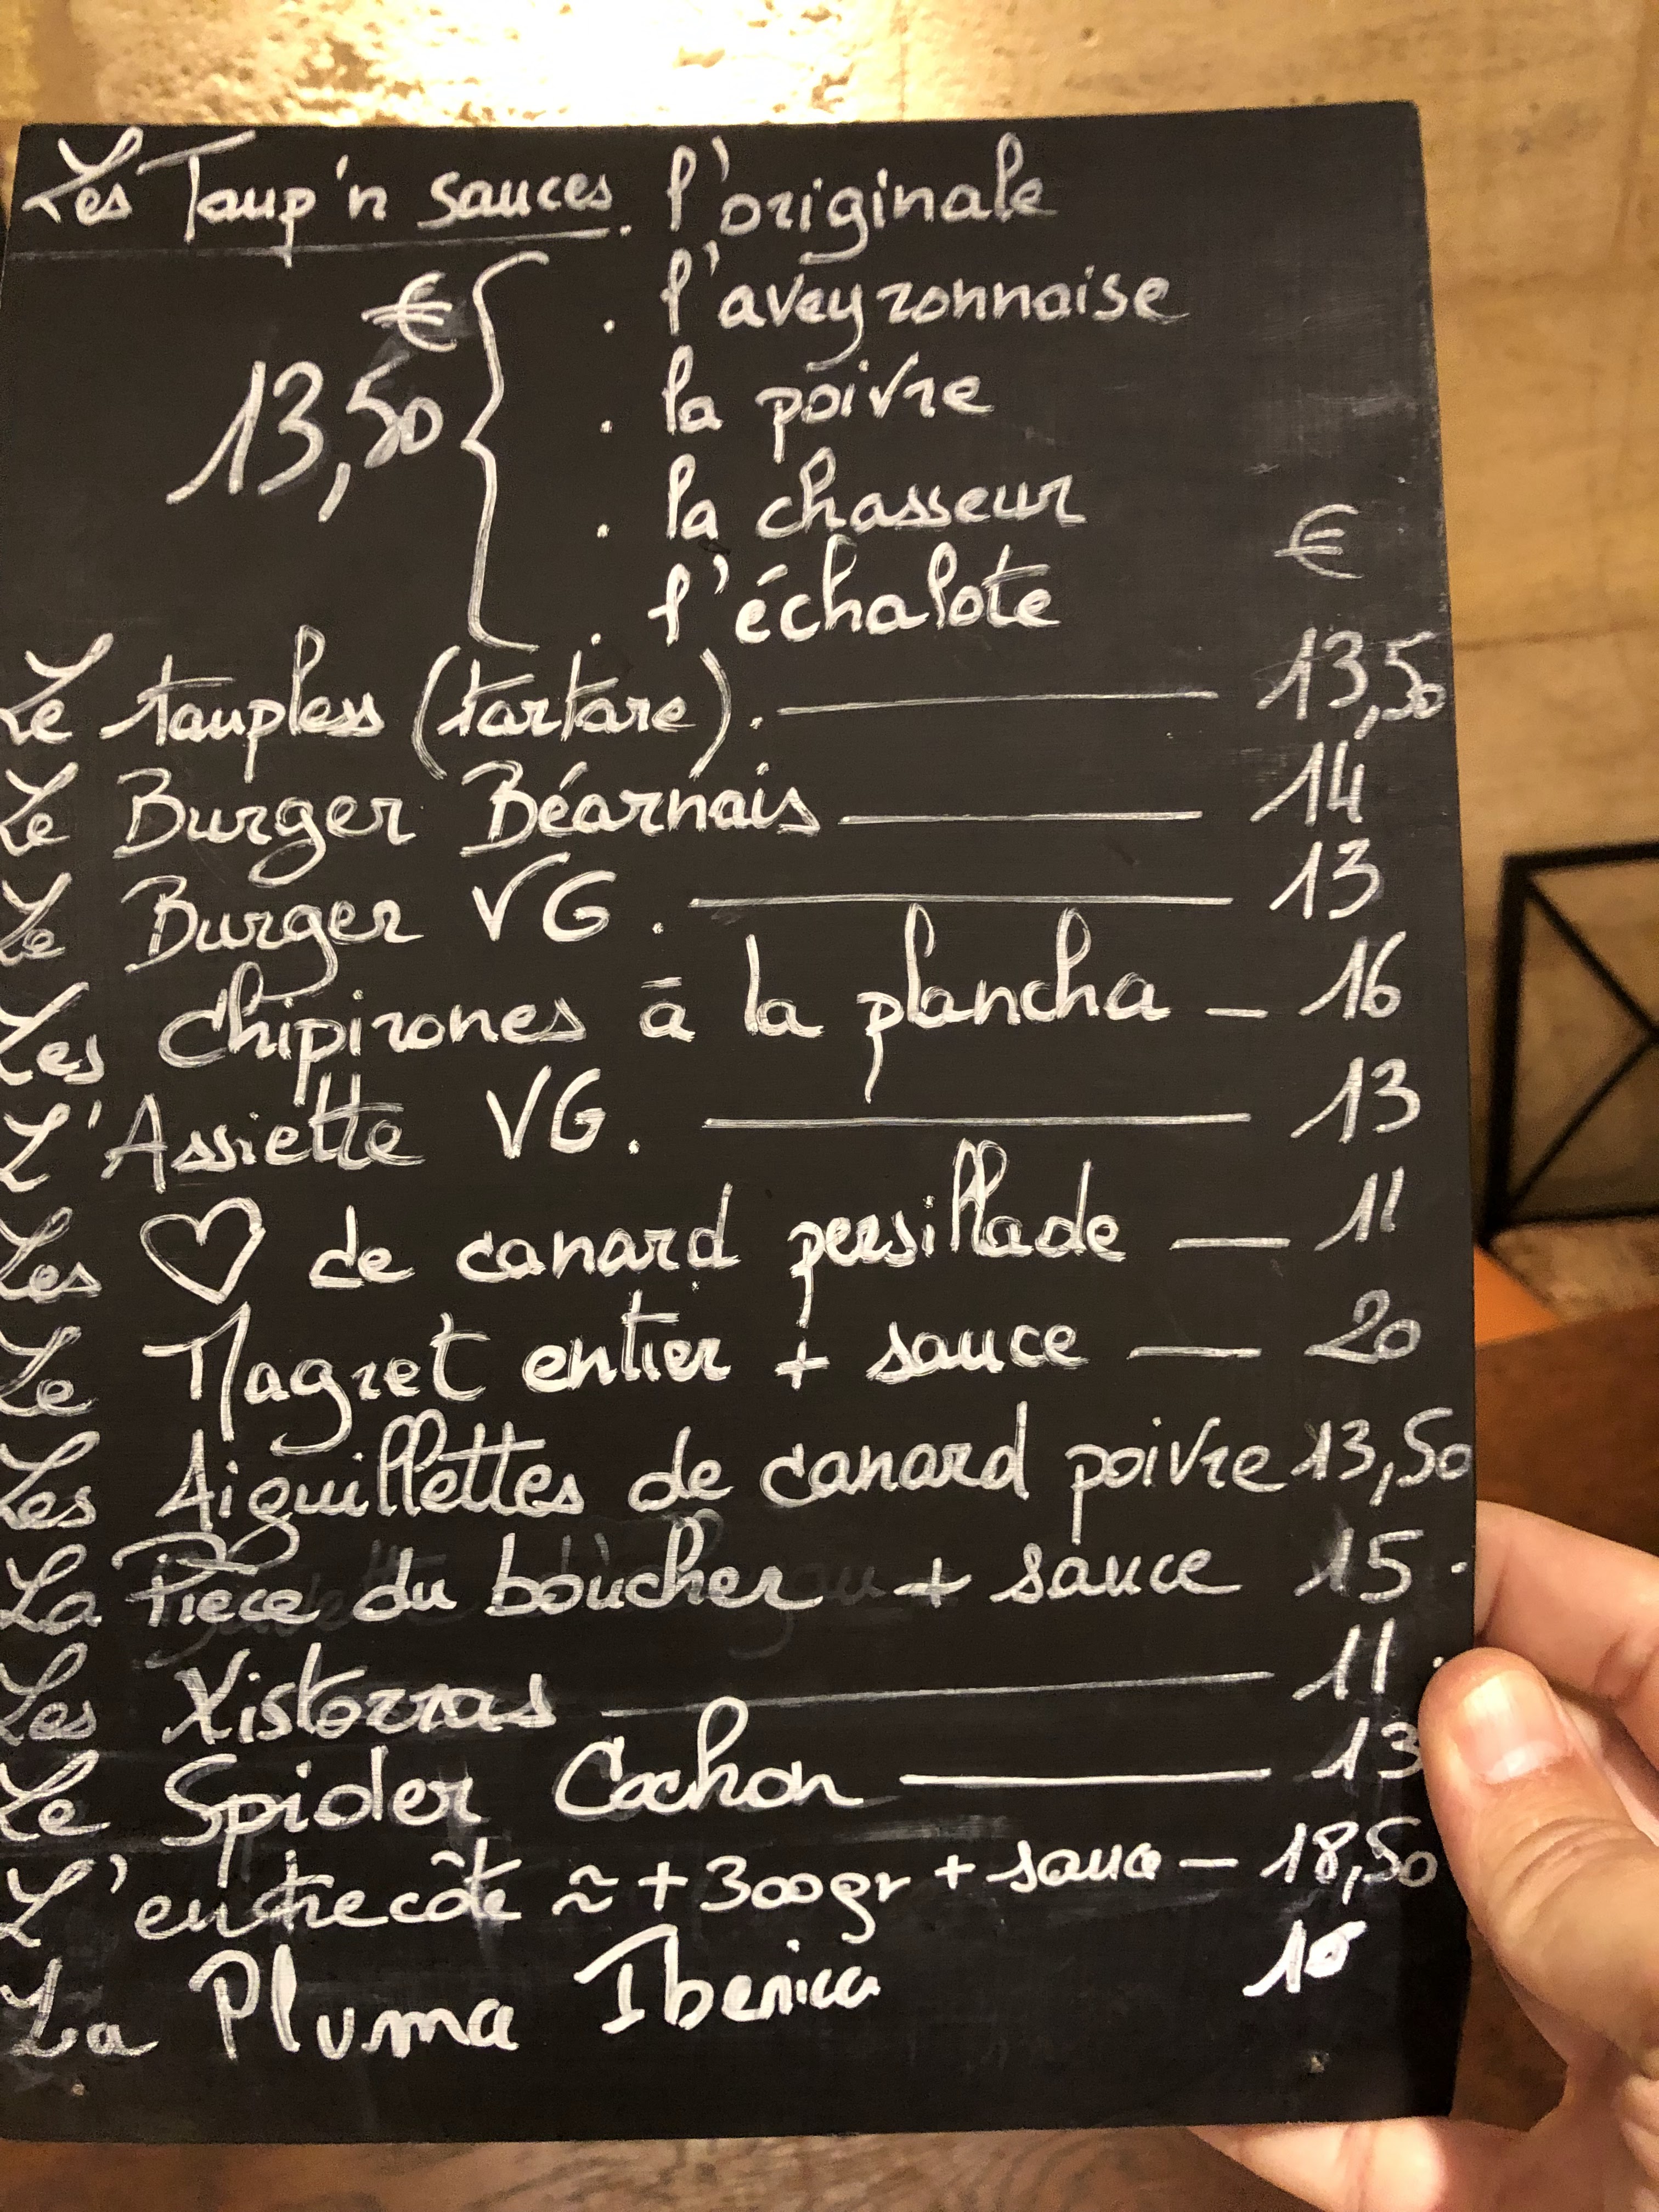 Les Taup'n sauces. l'originale
. l'aveyronnaise
€
13,50
. la poivre
. la chasseur
. l'échalote
€
Le taupless (tartare). 13,50
Le Burger Béarnais 14
Le Burger VG. 13
Les chipirones à la plancha 16
L'Assiette VG. 13
Les ♡ de canard persillade 11
Le Magret entier + sauce 20
Les Aiguillettes de canard poivre 13,50
La Pièce du boucher + sauce 15.
Les Xistorras 11.
Le Spider Cochon 13
L'entrecôte ≈ + 300gr + sauce 18,50
La Pluma Iberica